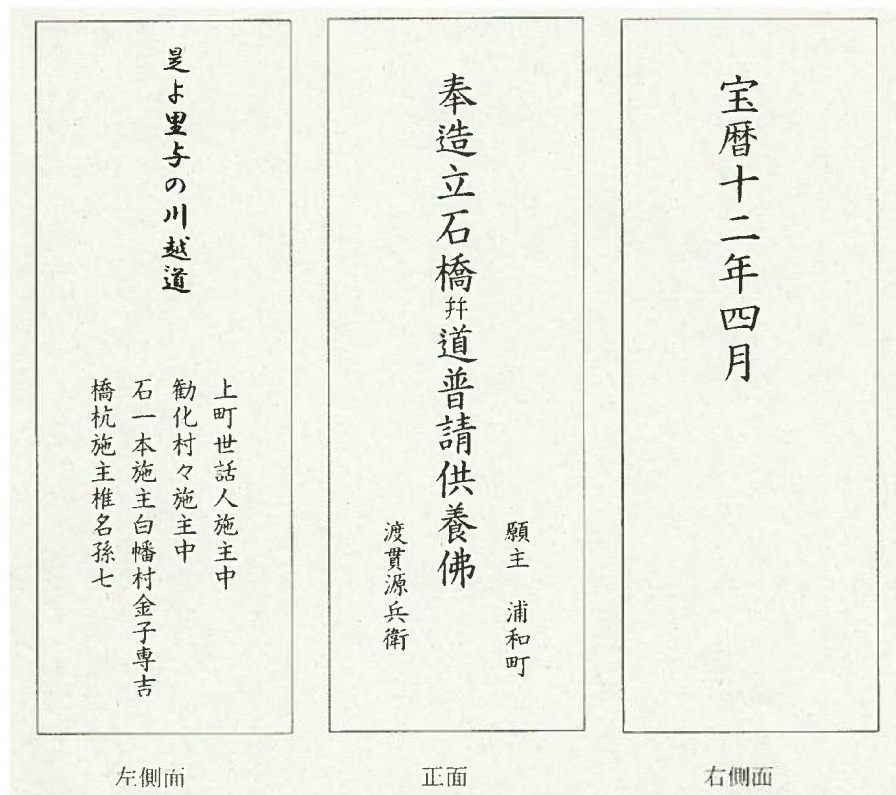 宝暦十二年四月
右側面
願主 浦和町
奉造立石橋幷道普請供養佛
渡貫源兵衛
正面
是よ里与の川越道
上町世話人施主中
勧化村々施主中
石一本施主白幡村金子専吉
橋杭施主椎名孫七
左側面